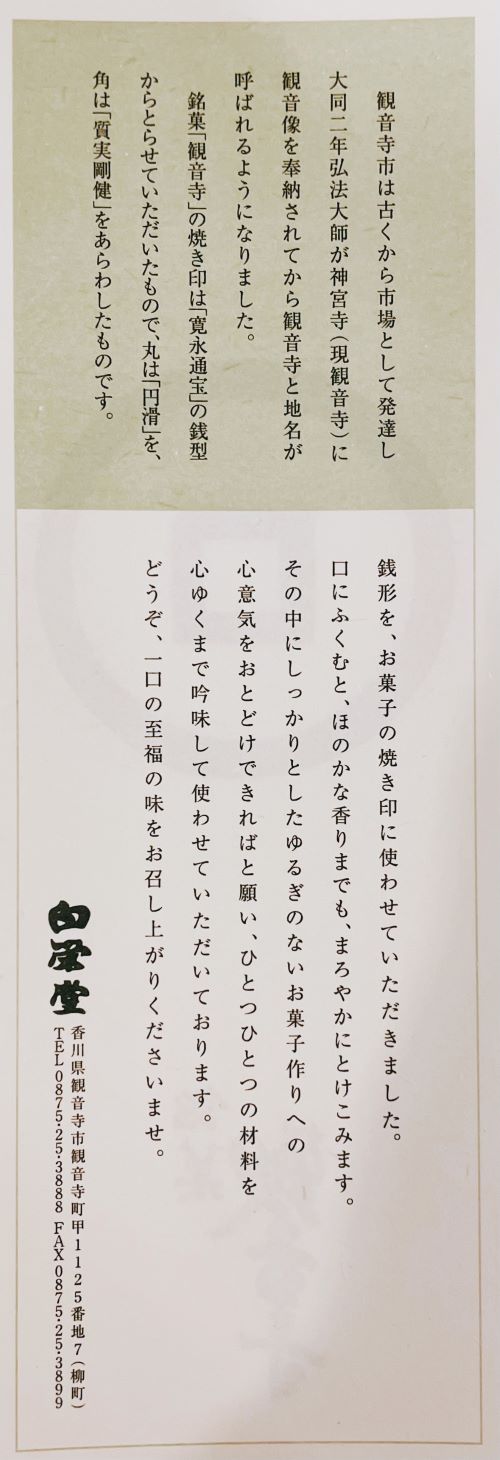 観音寺市は古くから市場として発達し
大同二年弘法大師が神宮寺(現観音寺)に
観音像を奉納されてから観音寺と地名が
呼ばれるようになりました。
銘菓「観音寺」の焼き印は「寛永通宝」の銭型
からとらせていただいたもので、丸は「円滑」を、
角は「質実剛健」をあらわしたものです。
銭形を、お菓子の焼き印に使わせていただきました。
口にふくむと、ほのかな香りまでも、まろやかにとけこみます。
その中にしっかりとしたゆるぎのないお菓子作りへの
心意気をおとどけできればと願い、ひとつひとつの材料を
心ゆくまで吟味して使わせていただいております。
どうぞ、一口の至福の味をお召し上がりくださいませ。
白栄堂
香川県観音寺市観音寺町甲1125番地7(柳町)
TEL 0875·25·3888 FAX 0875·25·3899